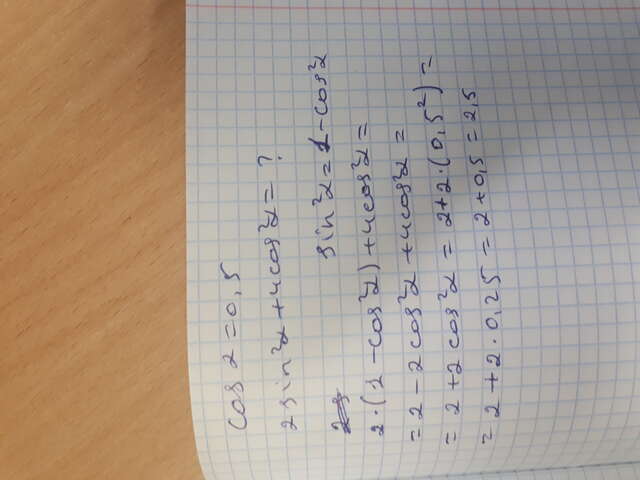 cos α = 0,5
2 sin²α + 4cos²α = ?
sin²α = 1 - cos²α
2 · (1 - cos²α) + 4cos²α =
= 2 - 2cos²α + 4cos²α =
= 2 + 2 cos²α = 2 + 2 · (0,5²) =
= 2 + 2 · 0,25 = 2 + 0,5 = 2,5